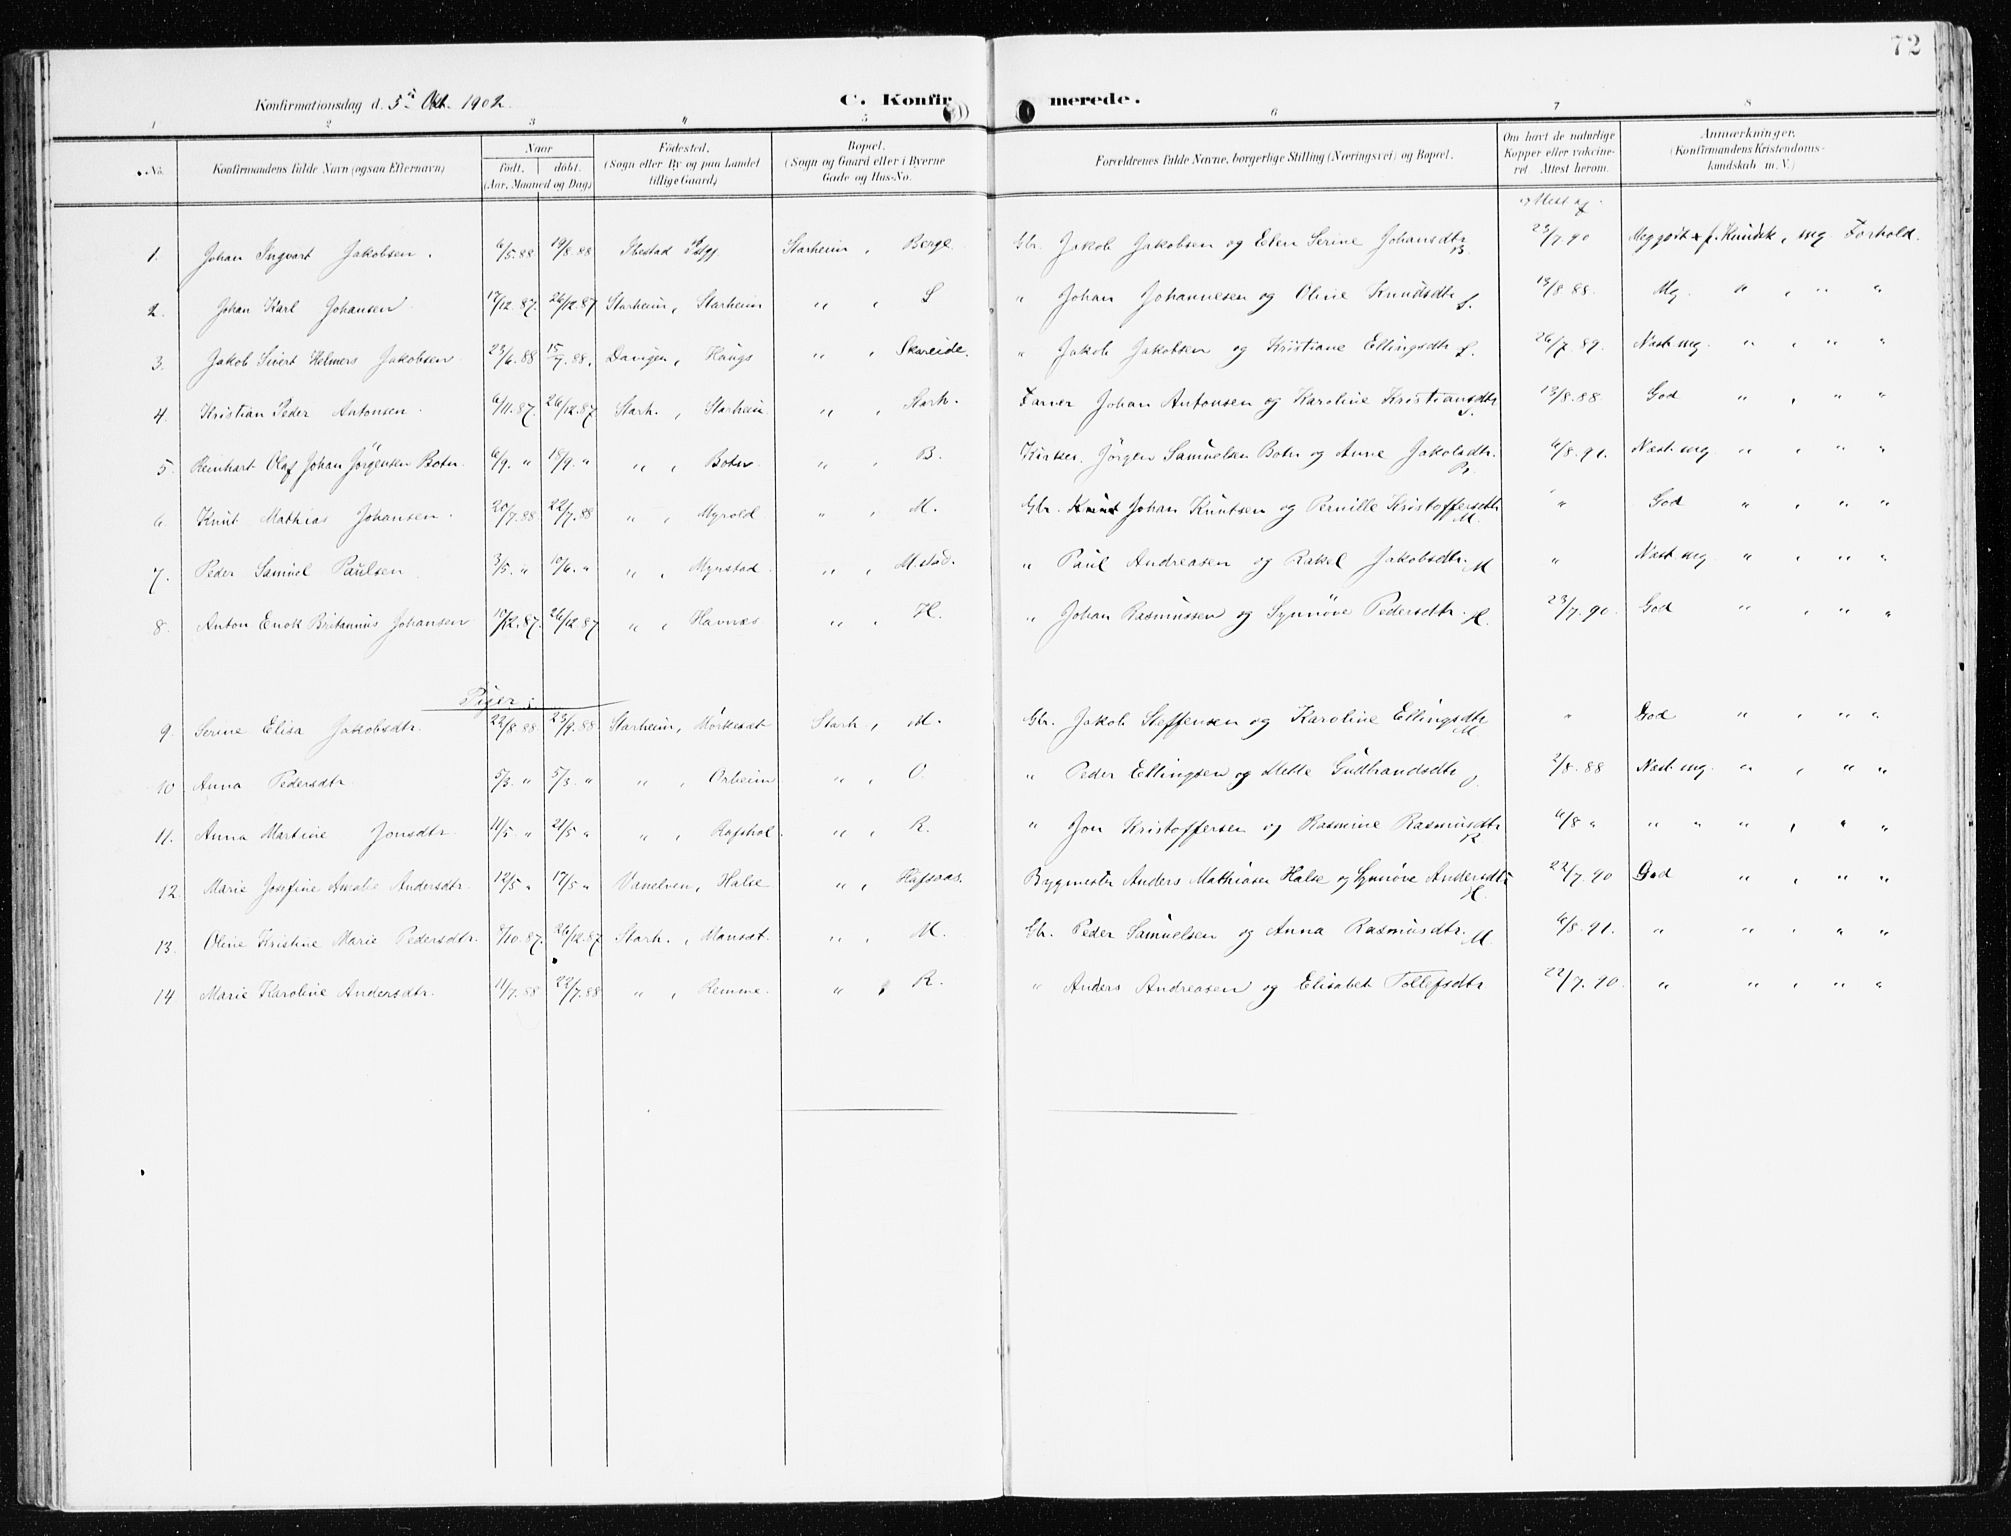 72
Konfirmationsdag d. 5te Okt. 1902. C. Konfirmerede.
1 2 3 " 5 6 7 8
No. Konfirmandens fulde Navn (ogsaa Efternavn) Naar født, døbt. (Aar, Maaned og Dag) Födested, (Sogn eller By og paa Landet tillige Gaard) Bopæl. (Sogn og Gaard eller i Byerne Gade og Hus-No. Forældrenes fulde Navne, borgerlige Stilling (Næringsvei) og Bopæl. Om havt de naturlige Kopper eller vakcineret. Attest herom. Anmærkninger. (Konfirmandens Kristendomskundskab m. V.)
Attest af
1. Johan Ingvart Jakobsen. 6/5.88 19/8.88 Ibestad Starheim, Berge Gbr. Jakob Jakobsen og Elen Serine Johansdtr B. 23/7.90 Meg godt Kundsk, mg. Forhold.
2. Johan Karl Johansen 17/12.87. 26/12.87 Starheim, Starheim " , S " Johan Johannesen og Oline Knudsdtr S. 13/8.88. Mg. " , " "
3. Jakob Sivert Helmers Jakobsen 23/6.88 15/7.88. Davigen, Haugs " , Skareide. " Jakob Jakobsen og Kristiane Ellingsdtr S. 26/7.89. Næst mg. " , " "
4. Kristian Peder Antonsen. 6/11.87. 26/12.87 Starh. , Starheim " , Starh. Farver Johan Antonsen og Karoline Kristiansdtr S. 13/8.88 God " , " "
5. Reinhart Olaf Johan Jörgensen Botn. 6/9. " 18/9. " " , Botn. " , B. Kirkes. Jörgen Samuelsen Botn og Anne Jakobsdtr. B. 6/8.91. Næst mg " , " "
6. Knut Mathias Johansen. 20/7.88 22/7.88 " , Myrold " , M. Gbr. Johan Knutsen og Pernille Kristoffersdtr M. " God " , " "
7. Peder Samuel Paulsen 3/5. " 10/6. " " , Myrstad. " , M.stad. " Paul Andreasen og Rakel Jakobsdtr. M " Næst mg " , " "
8. Anton Enok Britannus Johansen 10/12.87. 26/12.87 " , Havnæs " , H. " Johan Rasmussen og Synnöve Pedersdtr. H. 23/7.90. God " , " "
Piger:
9 Serine Elisa Jakobsdtr. 22/8.88 23/9.88. Starheim, Mörkesæt Starh , M. Gbr. Jakob Steffensen og Karoline Ellingsdtr M " God " , " "
10 Anna Pedersdtr 5/3. " 5/3. " " , Orheim " , O. " Peder Ellingsen og Mette Gudbrandsdtr O 2/8.88 Næst mg. " , " "
11. Anna Martine Jonsdtr. 11/5 " 21/5 " " , Rafshol " , R. " Jon Kristoffersen og Rasmine Rasmusdtr R 6/8 " " " " , " "
12. Marie Josefine Amalie Andersdtr. 12/5 " 17/5 " Vanelven, Halse " , Hafsaas. Bygmester Anders Mathiasen Halse og Synnöve Andersdtr H. 22/7.90 God " , " "
13. Oline Kristine Marie Pedersdtr. 9/10.87. 26/12.87 Starh. , Mansæt. " , M. Gbr. Peder Samuelsen og Anna Rasmusdtr. M. 6/8.91. " " , " "
14 Marie Karoline Andersdtr. 11/7.88 22/7.88 " , Remme. " , R. " Anders Andreasen og Elisabet Tollefsdtr 22/7.90. " " , " "